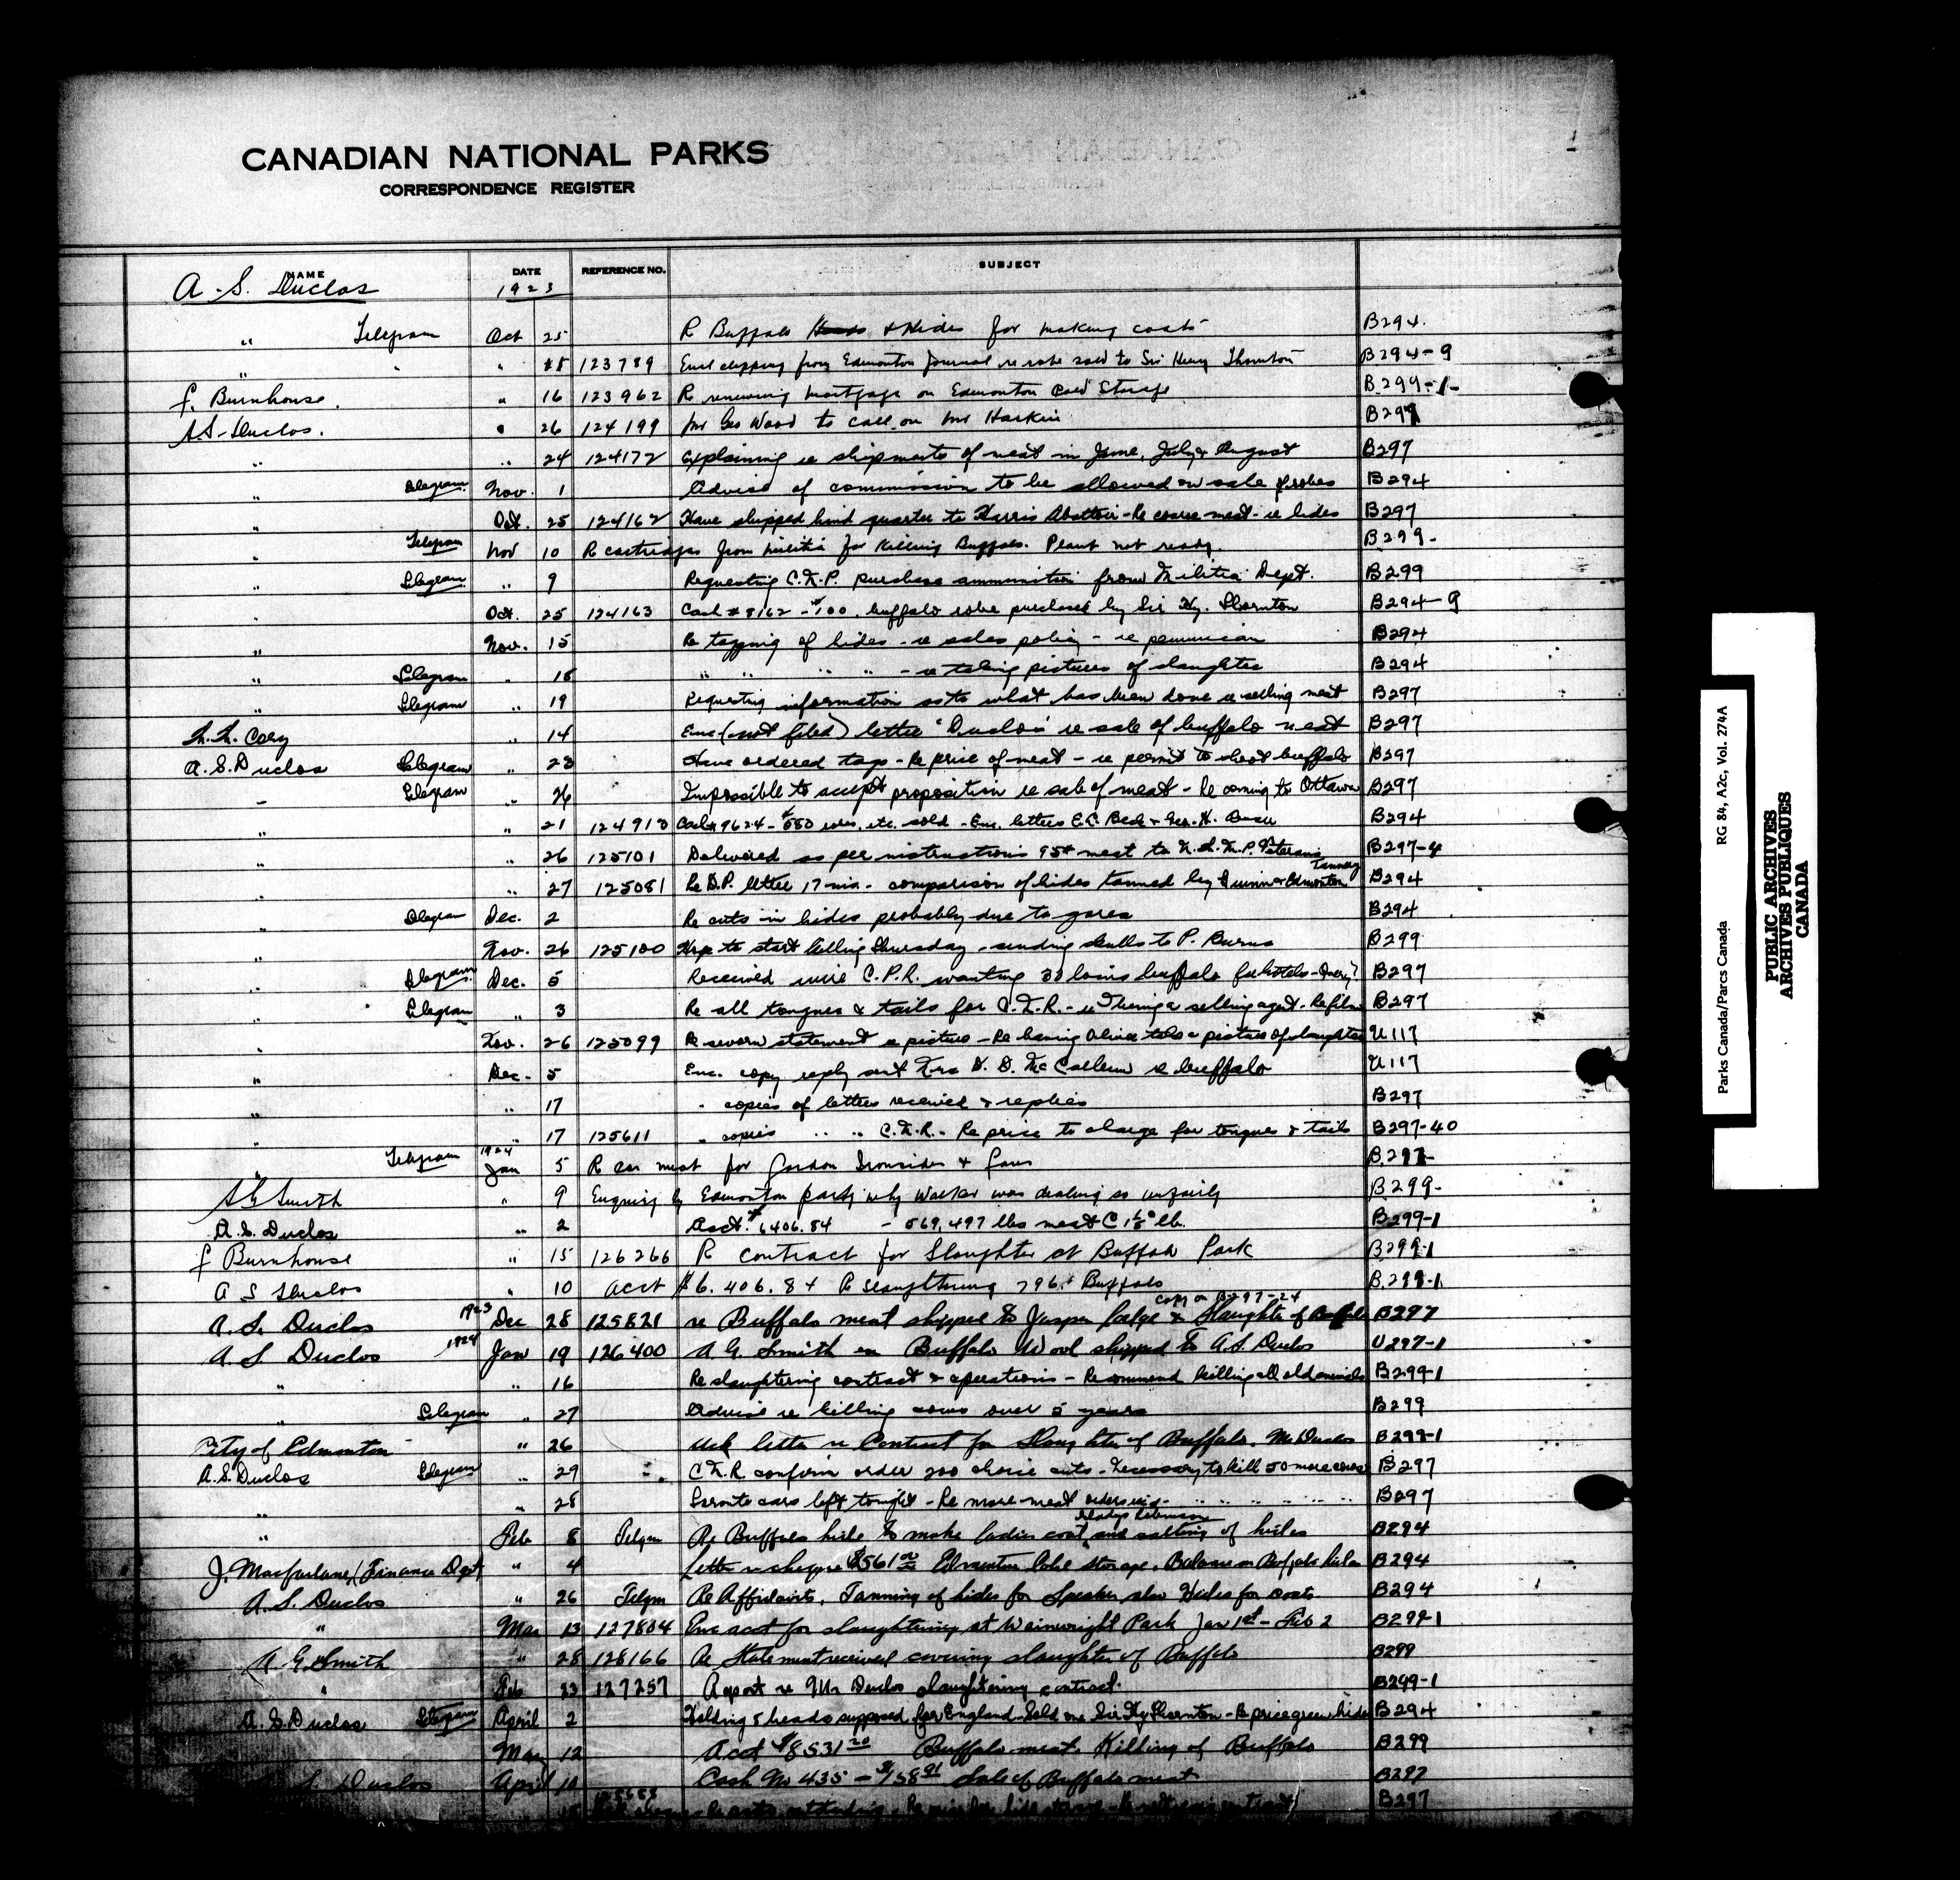 1
CANADIAN NATIONAL PARKS
CORRESPONDENCE REGISTER
NAME DATE REFERENCE NO. SUBJECT
A. S. Duclos 1923
" Telegram Oct 25 R Buffalo & Hides for making coats B294.
" " 123789 Encl clipping from Edmonton Journal re robe sold to Sir Henry Thornton B294-9
J. Burnhouse. " 16 123962 R renewing mortgage on Edmonton Cold Storage B.299-1-
A.S. Duclos. " 26 124199 Mr Geo Wood to call on Mr Harkin B297
" " 24 124172 Explaining re shipments of meat in June, July & August B297
" Telegram. Nov. 1 Advise of commission to be allowed on sale of robes B294
" Oct. 25 124162 Have shipped hind quarter to Harris Abattoir - Re coarse meat - re hides B297
" Telegram Nov 10 R cartridges from militia for killing Buffalo. Plant not ready. B299-
" Telegram " 9 Requesting C.N.P. purchase ammunition from Militia Dept. B299
" Oct. 25 124163 Cash #8162 - $100. buffalo robe purchased by Sir Hy. Thornton B294-9
" Nov. 15 Re tagging of hides - re sales policy - re pemmican B294
" Telegram " 18 " " " " - re taking pictures of slaughter B294
" Telegram " 19 Requesting information as to what has been done re selling meat B297
" 14 Enc (not filed) letter Duclos re sale of buffalo meat B297
A.S. Duclos Telegram " 23 Have ordered tags - Re price of meat - re permit to shoot buffalo B297
" Telegram " 26 Impossible to accept proposition re sale of meat - Re coming to Ottawa B297
" " 21 124913 Cash #9624 - $550 robes, etc. sold - Enc. letters B294
" " 26 125101 Delivered as per instructions 95# meat to B297-4
" " 27 125081 Re D.P. letter 17 - comparison of hides tanned by & Edmonton Tannery B294
" Telegram Dec. 2 Re cuts in hides probably due to gores B294
" Nov. 26 125100 Hope to start killing Thursday - sending skulls to P. Burns B299
" Telegram Dec. 5 Received wire C.P.R. wanting 30 loins buffalo for hotels B297
" Telegram " 3 Re all tongues & tails for C.N.R. - re having a selling agent - Re film B297
" Nov. 26 125099 Re statement re pictures - Re having take pictures of slaughter U117
" Dec. 5 Enc. copy reply sent Mrs D. D. McCallum re buffalo U117
" " 17 " copies of letters received & replies B297
" " 17 125611 " copies " " C.N.R. - Re price to charge for tongues & tails B297-40
" Telegram 1924 Jan 5 R car meat for Gordon Ironsides & Fares B.297-
A G Smith " 9 Enquiry by Edmonton party why Walker was dealing so unfairly B299-
A. S. Duclos " 2 Acct. $6406.84 - 569,497 lbs meat @ 1⅛¢ lb. B299-1
J Burnhouse " 15 126266 R contract for Slaughter at Buffalo Park B299-1
A S Duclos " 10 acct $6.406.84 R Slaughtering 796 Buffalo B.299-1
copy on B297-24
A. S. Duclos 1923 Dec 28 125821 re Buffalo meat shipped to Jasper Lodge & Slaughter of Buffalo B297
A. S Duclos 1924 Jan 19 126400 A. G. Smith en Buffalo Wool shipped to A.S. Duclos U297-1
" " 16 Re slaughtering contract & operations - Recommend killing all old animals B299-1
" Telegram " 27 Advise re killing cows over 5 years B299
City of Edmonton " 26 Ack letter re Contract for Slaughter of Buffalo. Mr Duclos B299-1
A.S. Duclos Telegram " 29 C.N.R. confirm order 200 choice cuts - Necessary to kill 50 more cows B297
" " 28 Toronto cars left tonight - Re more meat orders B297
" Feb 8 Telgm Re Buffalo hide to make ladies coat Gladys Robinson and salting of hides B294
J. Macfarlane, (Finance Dept) " 4 Letter re cheque $561.00 Edmonton Cold Storage. Balance on Buffalo hides B294
A. S. Duclos " 26 Telgm Re Affidavits, Tanning of hides for Speaker also Hides for coats B294
" Mar 13 127804 Enc acct for slaughtering at Wainwright Park Jan 1st - Feb 2 B299-1
A. G. Smith " 28 128166 Re Statement received covering slaughter of Buffalo B299
" Feb 23 127257 Report re Mr Duclos slaughtering contract. B299-1
A. S. Duclos Telegram April 2 Holding 5 heads supposed for England - Sold one Sir Hy Thornton - Re price green hides B294
Mar 12 Acct $8531.20 Buffalo meat. Killing of Buffalo B299
S Duclos April 10 Cash No 435 - $158.91 Sale of Buffalo meat B297
B297
Parks Canada/Parcs Canada RG 84, A2c, Vol. 274A
PUBLIC ARCHIVES
ARCHIVES PUBLIQUES
CANADA